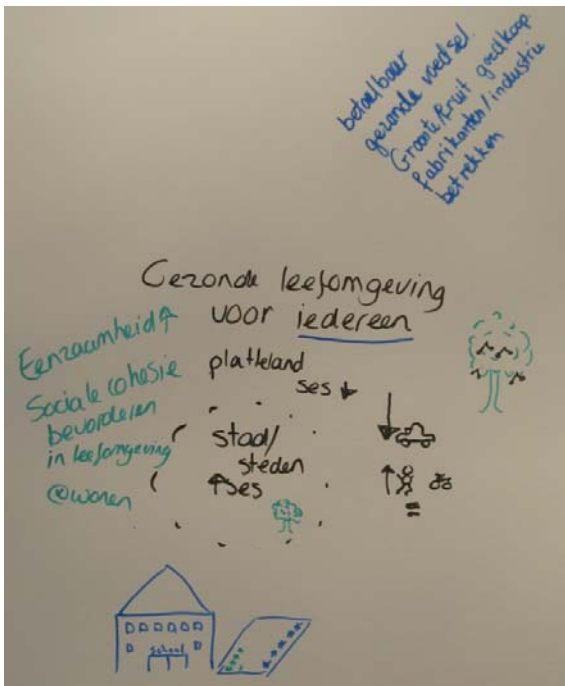 betaalbaar
gezonde voedsel.
Groente/fruit goedkoop
fabrikanten/industrie
betrekken
Gezonde leefomgeving
voor iedereen
Eenzaamheid↑
Sociale cohesie
bevorderen
in leefomgeving
@wonen
platteland
ses ↓
stad/
steden
↑ses
=
school